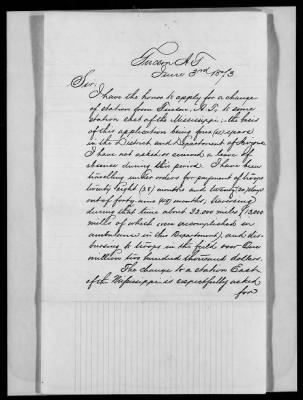 Tucson A.T.
June 3rd 1873
Sir.
I have the honor to apply for a change
of station from Tucson, A.T. to some
station east of the Mississippi: the basis
of this application being four (4) years
in the District and Department of Arizona
I have not asked or received a leave of
absence during this period. I have been
travelling under orders for payment of troops
twenty eight (28) months and twenty (20) days
out of forty nine (49) months, traversing
during that time about 32.000 miles (12000
miles of which were accomplished in
ambulance in this Department), and dis-
bursing to troops in the field over One
million two hundred thousand dollars.
The change to a station East
of the Mississippi is respectfully asked
for